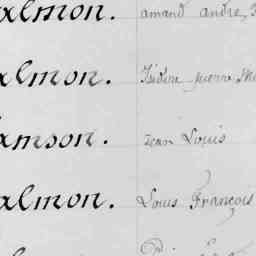 almon. amand andre,
almon. Isidore pierre
amson. Jean Louis
almon. Louis François